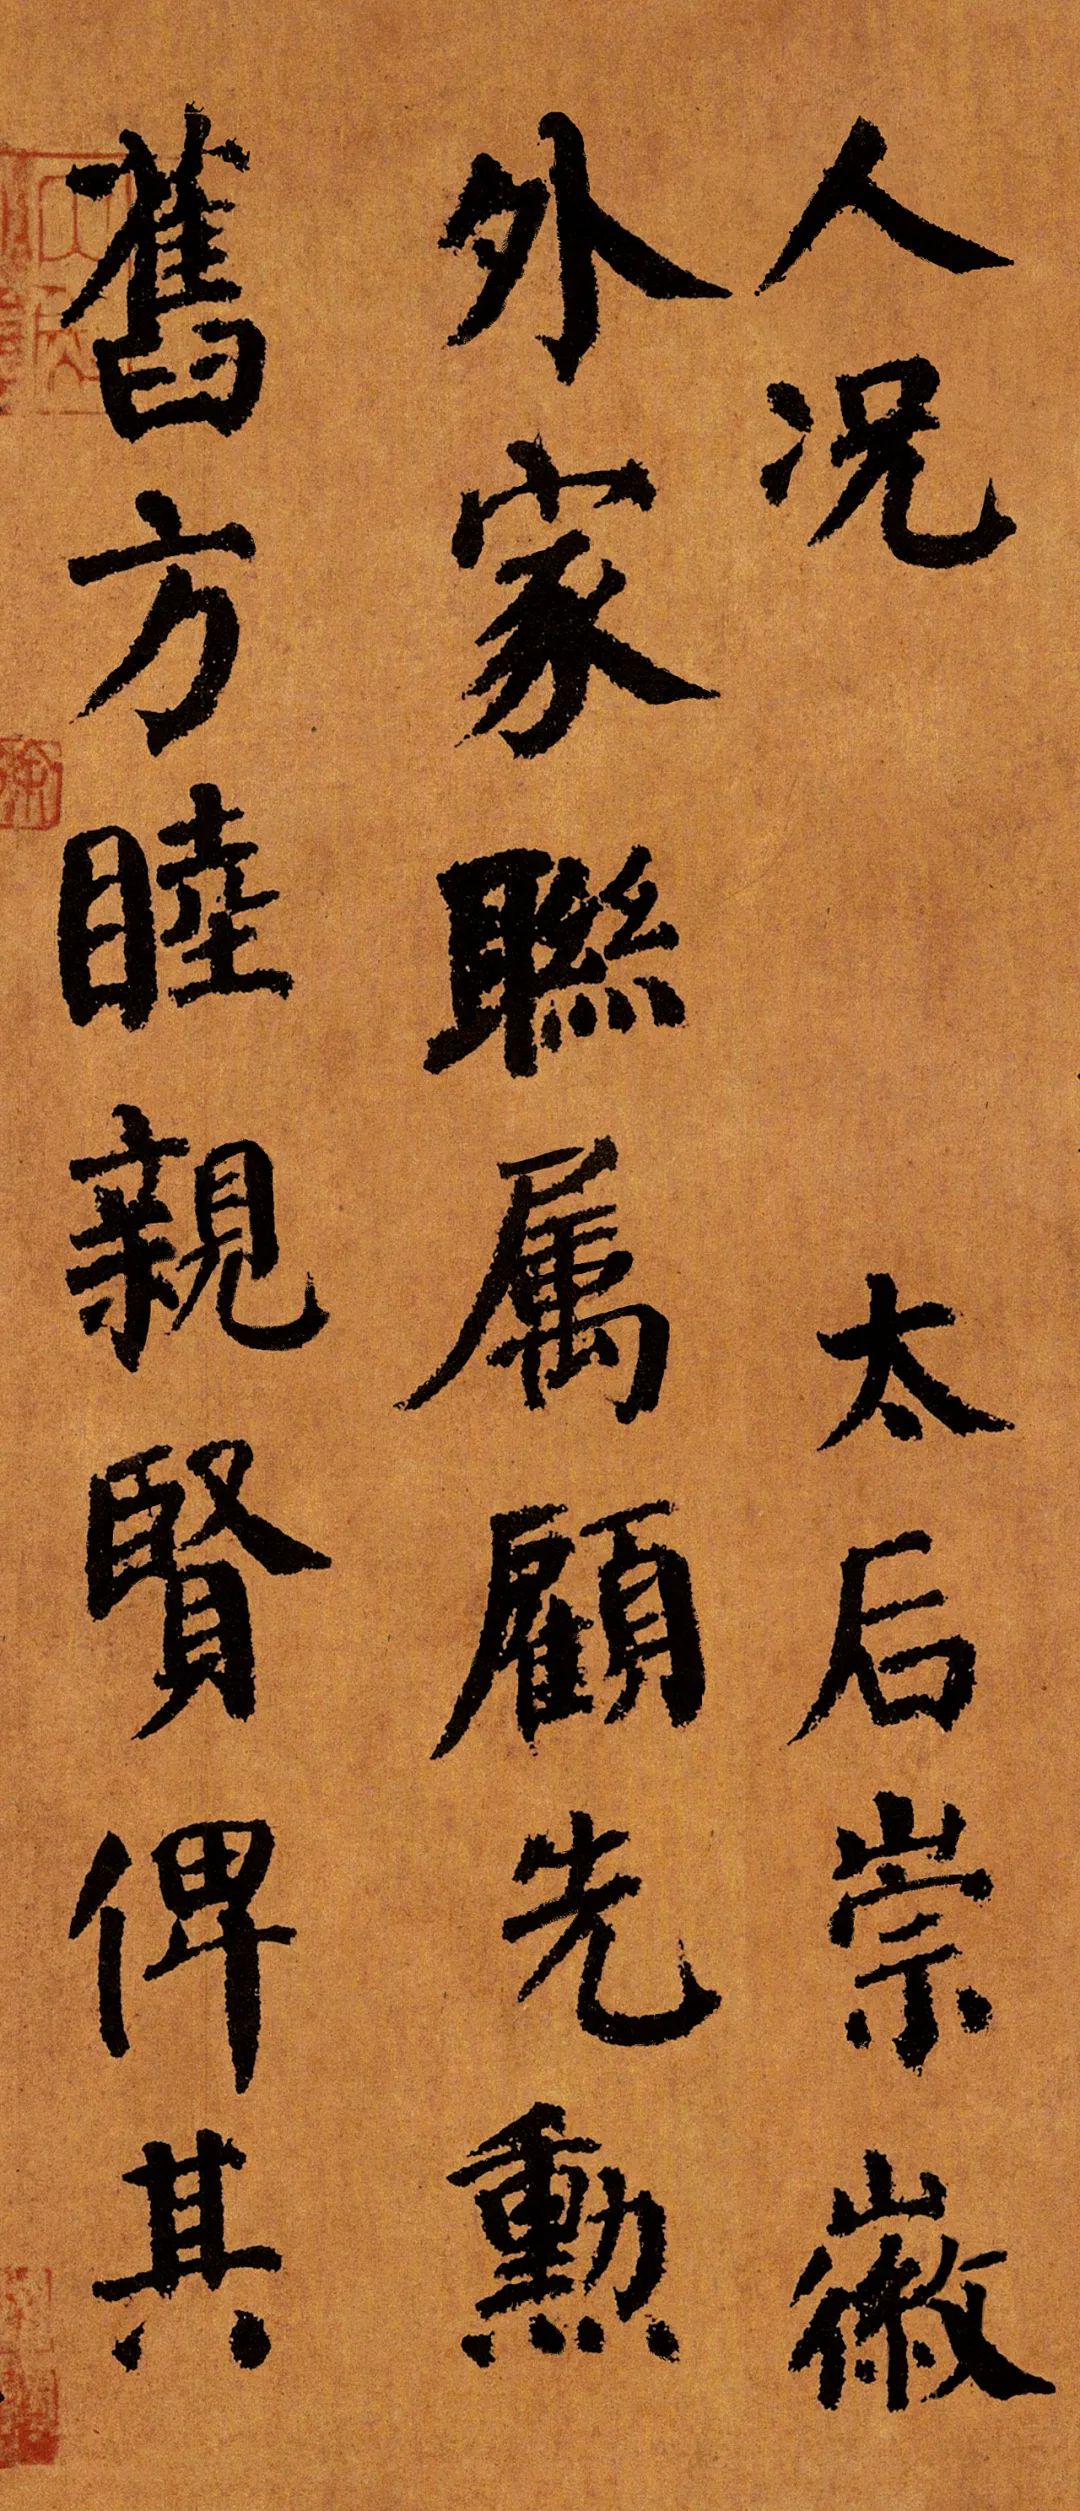 人况　太后崇徽
外家聯属顧先勳
舊方睦親賢俾其